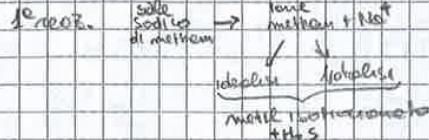 1° reaz. sale sodico di metham → ione metham + Na⁺
idrolisi fotolisi
metil isotiocianato
+ H₂S